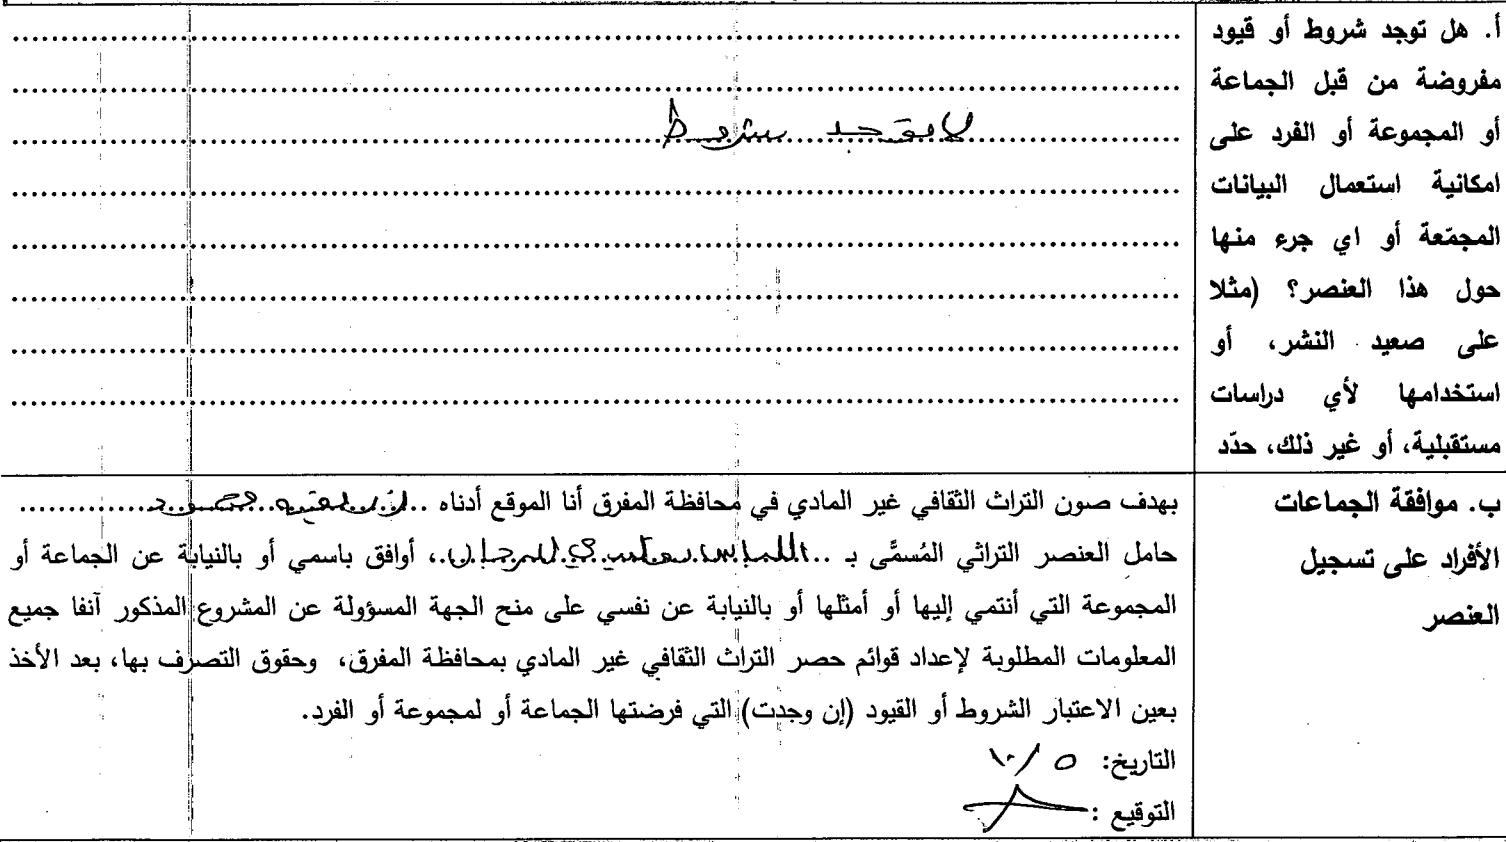 أ. هل توجد شروط أو قيود
مفروضة من قبل الجماعة
أو المجموعة أو الفرد على
امكانية استعمال البيانات
المجمّعة أو اي جرء منها
حول هذا العنصر؟ (مثلا
على صعيد النشر، أو
استخدامها لأي دراسات
مستقبلية، أو غير ذلك، حدّد
لا يوجد شروط
ب. موافقة الجماعات
الأفراد على تسجيل
العنصر
بهدف صون التراث الثقافي غير المادي في محافظة المفرق أنا الموقع أدناه
حامل العنصر التراثي المُسمَّى بـ ..، أوافق باسمي أو بالنيابة عن الجماعة أو
المجموعة التي أنتمي إليها أو أمثلها أو بالنيابة عن نفسي على منح الجهة المسؤولة عن المشروع المذكور آنفا جميع
المعلومات المطلوبة لإعداد قوائم حصر التراث الثقافي غير المادي بمحافظة المفرق، وحقوق التصرف بها، بعد الأخذ
بعين الاعتبار الشروط أو القيود (إن وجدت) التي فرضتها الجماعة أو لمجموعة أو الفرد.
التاريخ: ٥ / ١٠
التوقيع :